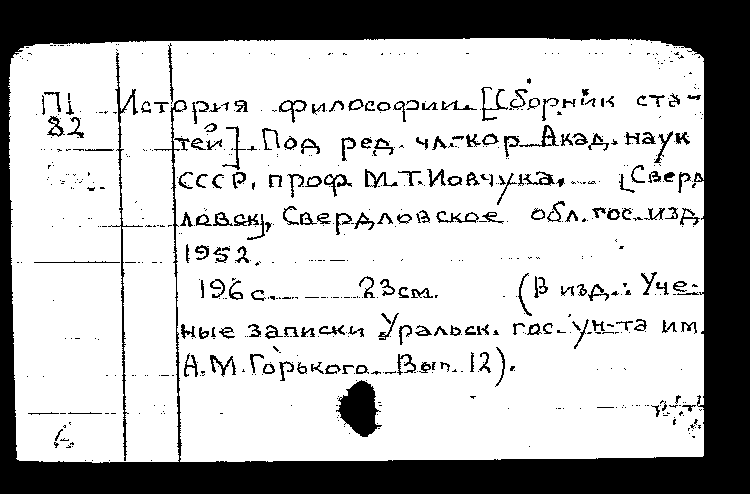 П1 История философии. [Сборник ста-
82 тей]. Под ред. чл.-кор. Акад. наук
СССР, проф. М.Т. Иовчука. [Сверд
ловск], Свердловское обл. гос. изд.
1952.
196 с. 23 см. (В изд.: Уче-
ные записки Уральск. гос. ун-та им.
А.М. Горького. Вып. 12).